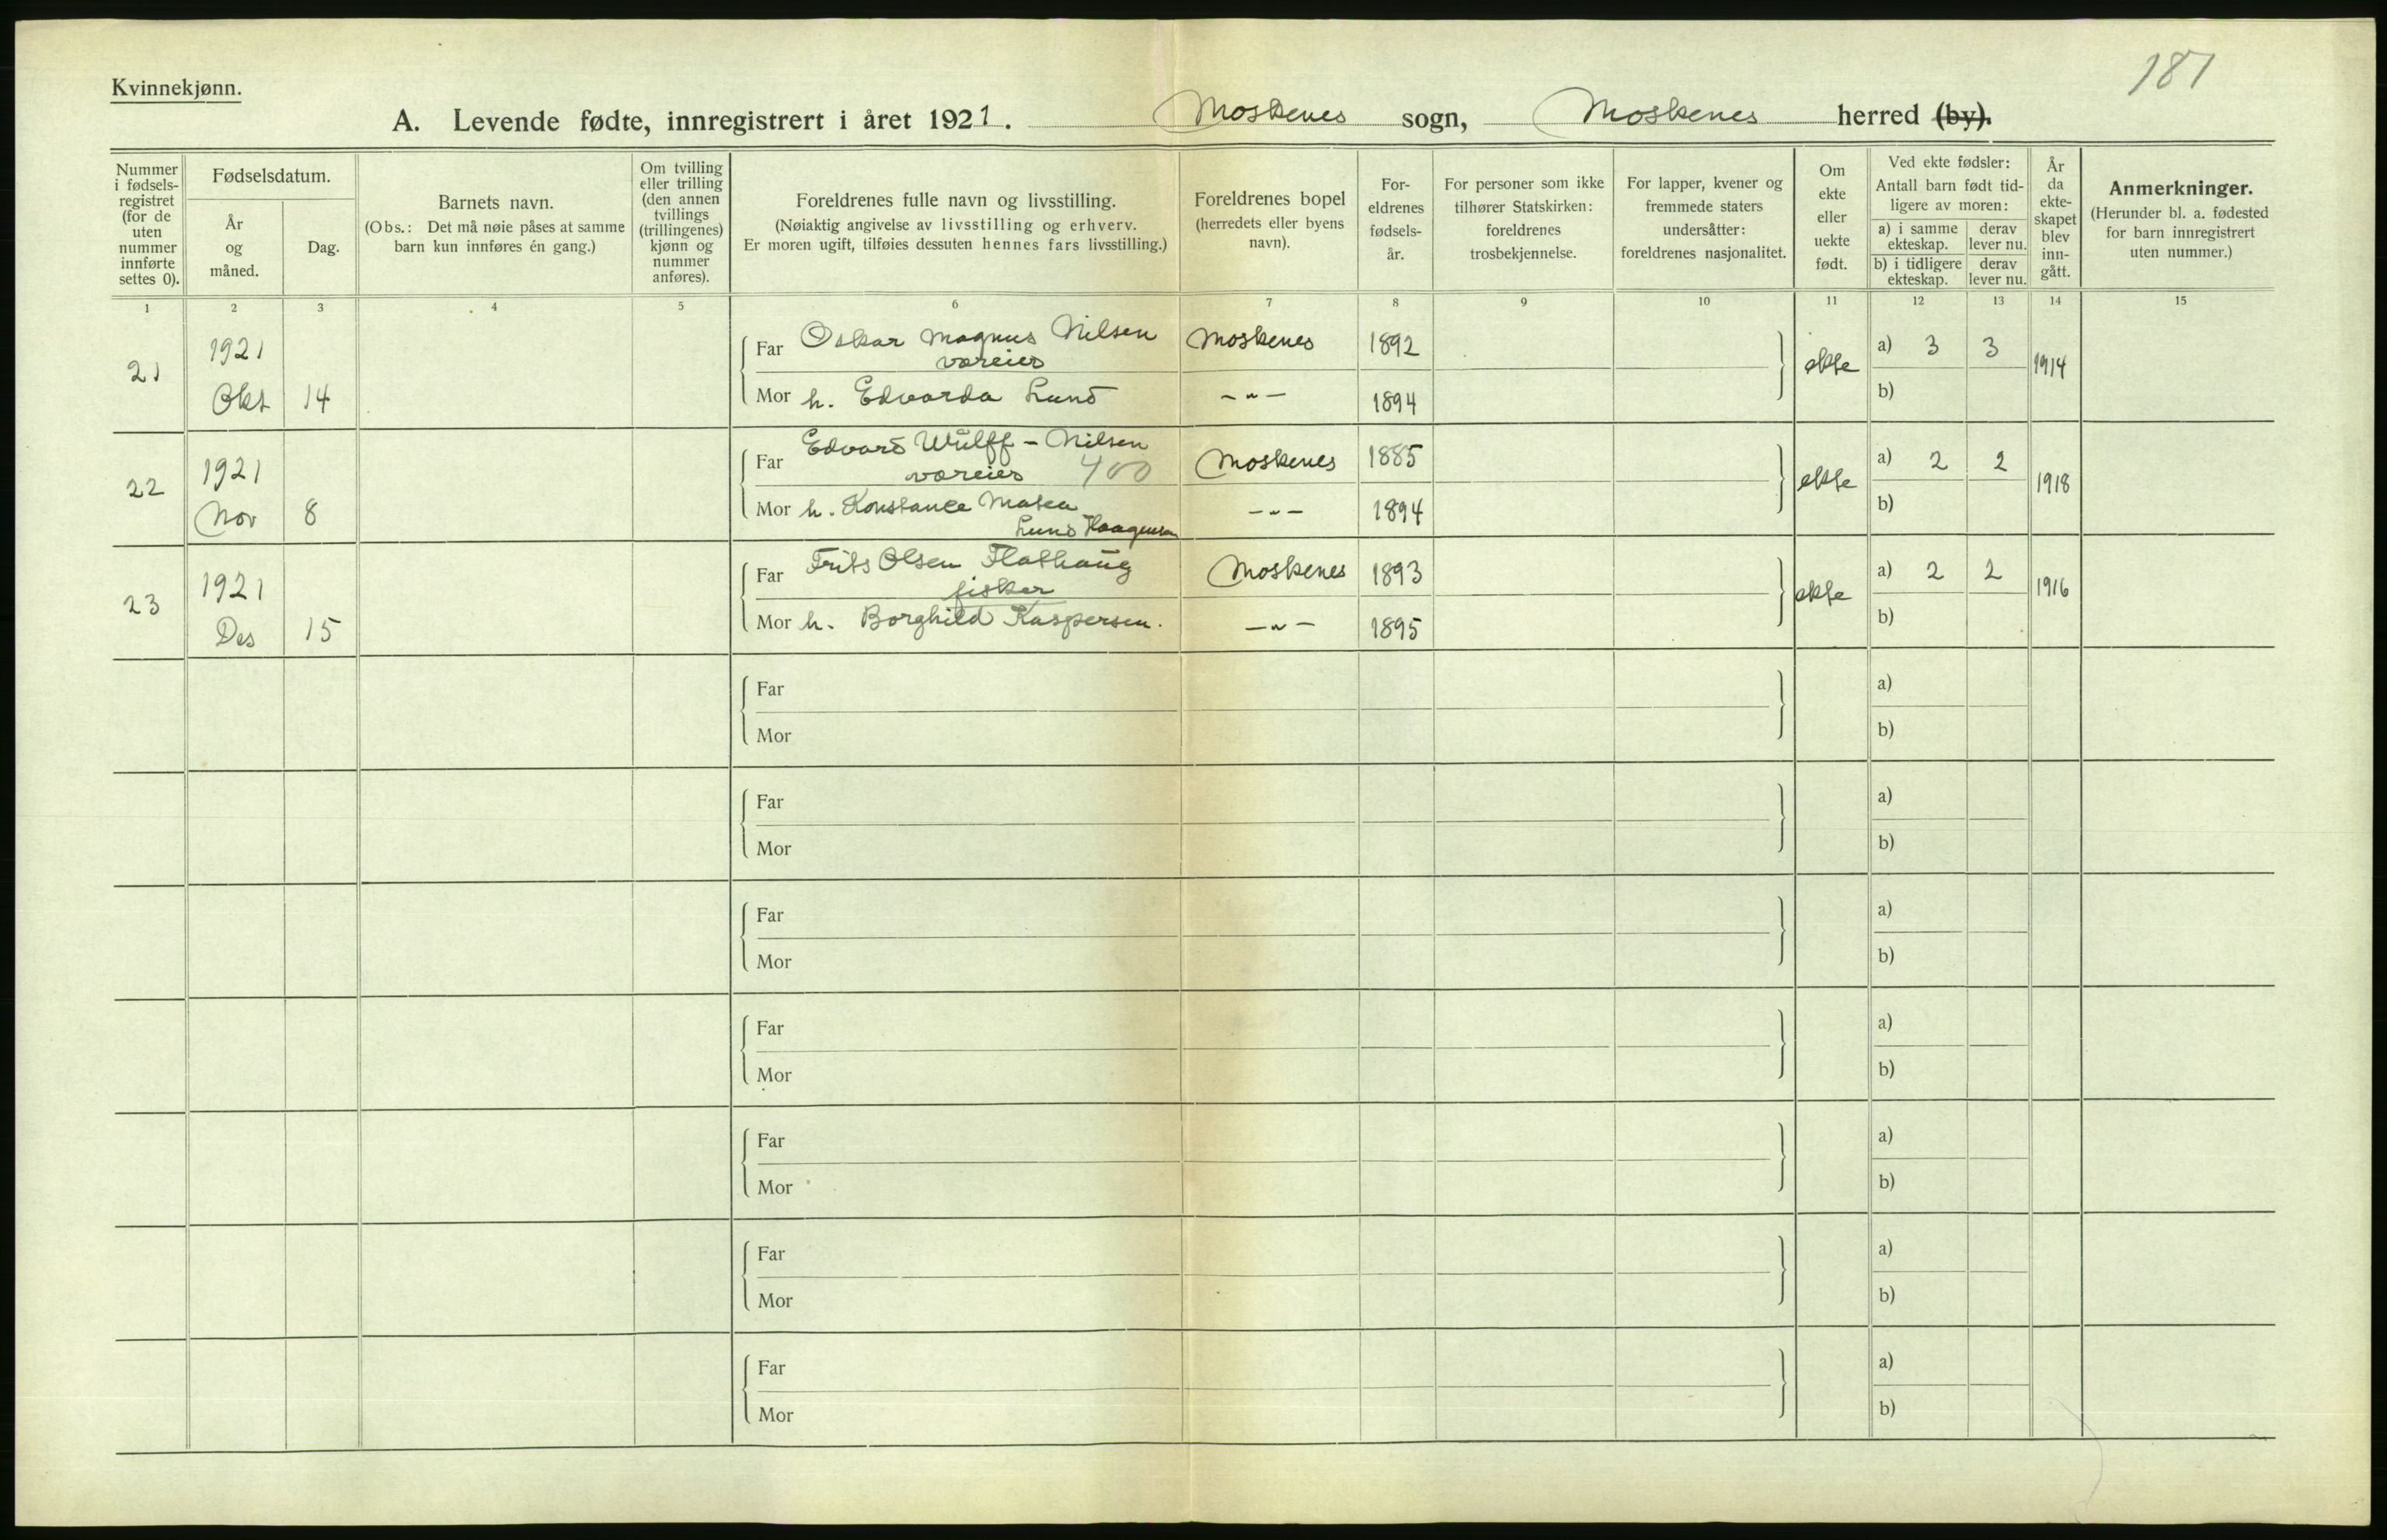 187
Kvinnekjønn.
A. Levende fødte, innregistrert i året 1921. Moskenes sogn, Moskenes herred (by).
Nummer i fødsels-registret (for de uten nummer innførte settes 0).
Fødselsdatum.
År og måned.
Dag.
Barnets navn.
(Obs.: Det må nøie påses at samme barn kun innføres én gang.)
Om tvilling eller trilling (den annen tvillings (trillingenes) kjønn og nummer anføres).
Foreldrenes fulle navn og livsstilling.
(Nøiaktig angivelse av livsstilling og erhverv.
Er moren ugift, tilføies dessuten hennes fars livsstilling.)
Foreldrenes bopel
(herredets eller byens navn).
For-eldrenes fødsels-år.
For personer som ikke tilhører Statskirken: foreldrenes trosbekjennelse.
For lapper, kvener og fremmede staters undersåtter: foreldrenes nasjonalitet.
Om ekte eller uekte født.
Ved ekte fødsler:
Antall barn født tid-ligere av moren:
a) i samme ekteskap. derav lever nu.
b) i tidligere ekteskap. derav lever nu.
År da ekte-skapet blev inn-gått.
Anmerkninger.
(Herunder bl. a. fødested for barn innregistrert uten nummer.)
1 2 3 4 5 6 7 8 9 10 11 12 13 14 15
21 1921 Okt 14
Far Oskar Magnus Nilsen Moskenes 1892 ekte a) 3 3 1914
væreier
Mor h. Edvarda Lund -„- 1894 b)
22 1921 Nov 8
Far Edvard Wulff - Nilsen Moskenes 1885 ekte a) 2 2 1918
væreier 400
Mor h. Konstance Matea -„- 1894 b)
Lund Haagensen
23 1921 Des 15
Far Frits Olsen Flathaug Moskenes 1893 ekte a) 2 2 1916
fisker
Mor h. Borghild Kaspersen. -„- 1895 b)
Far a)
Mor b)
Far a)
Mor b)
Far a)
Mor b)
Far a)
Mor b)
Far a)
Mor b)
Far a)
Mor b)
Far a)
Mor b)